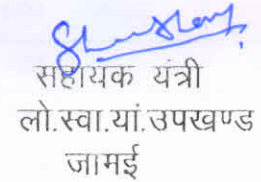 सहायक यंत्री
लो.स्वा.यां.उपखण्ड
जामई